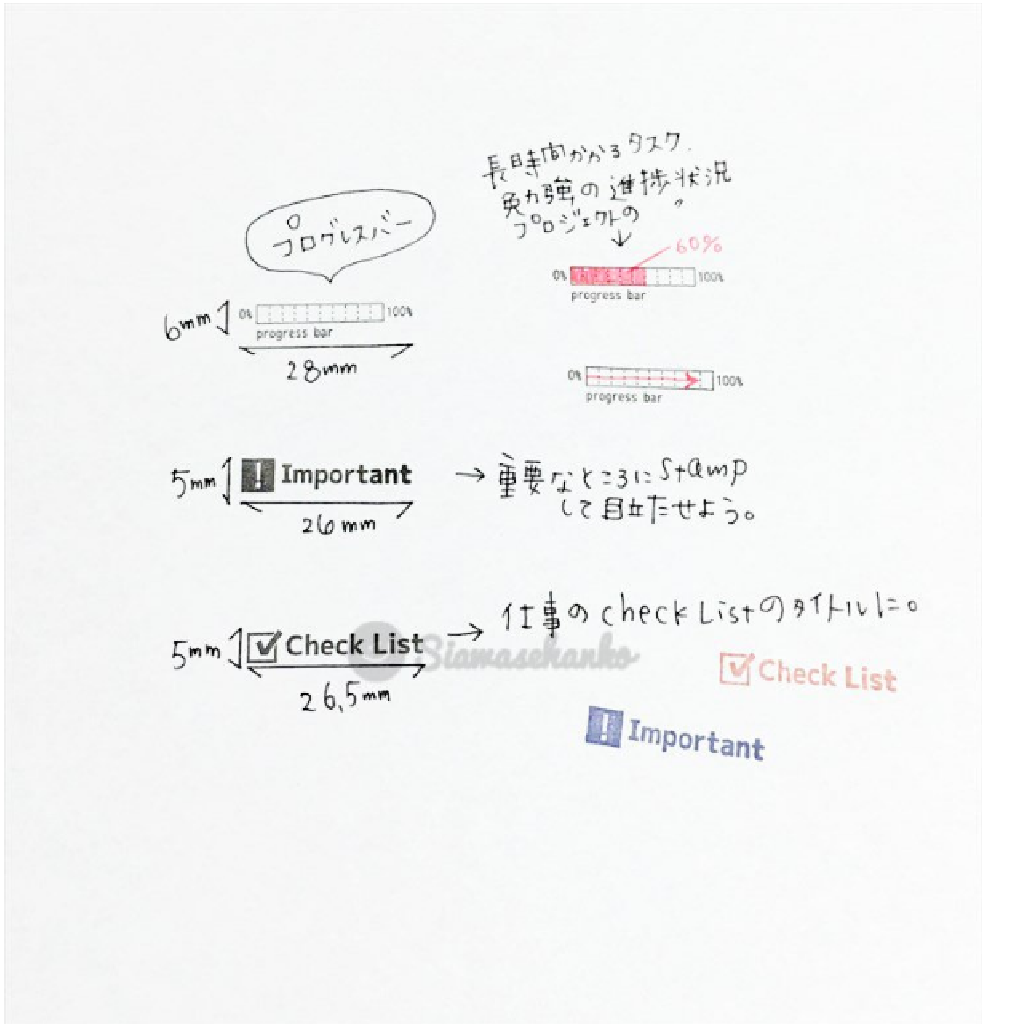 長時間かかるタスク、
勉強の進捗状況
プロジェクトの 〃
プログレスバー
60%
0% 100%
progress bar
6mm
0% 100%
progress bar
28mm
0% 100%
progress bar
5mm
! Important
26mm
→ 重要なところにStamp
して目立たせよう。
5mm
Check List
26.5mm
→ 仕事のcheck Listのタイトルに。
Siawasehanko
Check List
! Important